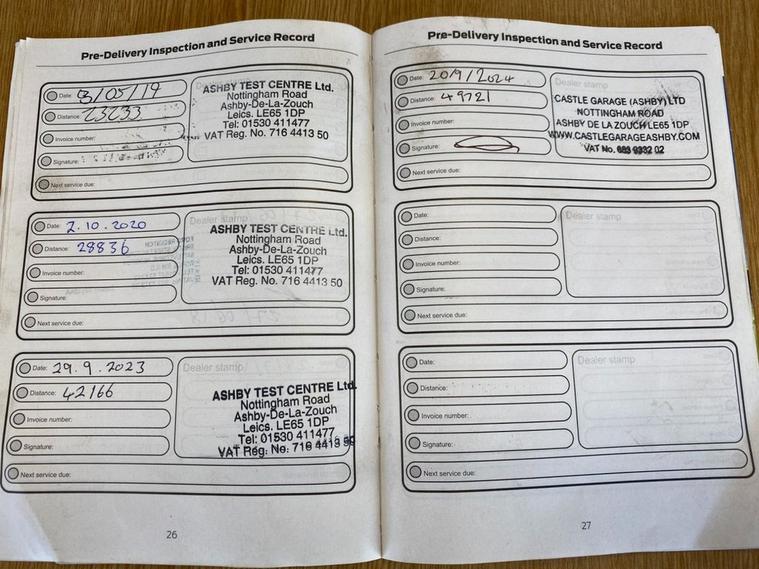 Pre-Delivery Inspection and Service Record
Date: 3/05/19
Distance: 23233
Invoice number:
Signature:
Next service due:
Dealer stamp
ASHBY TEST CENTRE Ltd.
Nottingham Road
Ashby-De-La-Zouch
Leics. LE65 1DP
Tel: 01530 411477
VAT Reg. No. 716 4413 50
Date: 2.10.2020
Distance: 28836
Invoice number:
Signature:
Next service due:
Dealer stamp
ASHBY TEST CENTRE Ltd.
Nottingham Road
Ashby-De-La-Zouch
Leics. LE65 1DP
Tel: 01530 411477
VAT Reg. No. 716 4413 50
Date: 29.9.2023
Distance: 42166
Invoice number:
Signature:
Next service due:
Dealer stamp
ASHBY TEST CENTRE Ltd.
Nottingham Road
Ashby-De-La-Zouch
Leics. LE65 1DP
Tel: 01530 411477
VAT Reg. No. 716 4413 50
26
Pre-Delivery Inspection and Service Record
Date: 20/9/2024
Distance: 49721
Invoice number:
Signature:
Next service due:
Dealer stamp
CASTLE GARAGE (ASHBY) LTD
NOTTINGHAM ROAD
ASHBY DE LA ZOUCH LE65 1DP
WWW.CASTLEGARAGEASHBY.COM
VAT No. 02
Date:
Distance:
Invoice number:
Signature:
Next service due:
Dealer stamp
Date:
Distance:
Invoice number:
Signature:
Next service due:
Dealer stamp
27